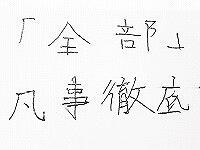 「全部」
凡事徹底